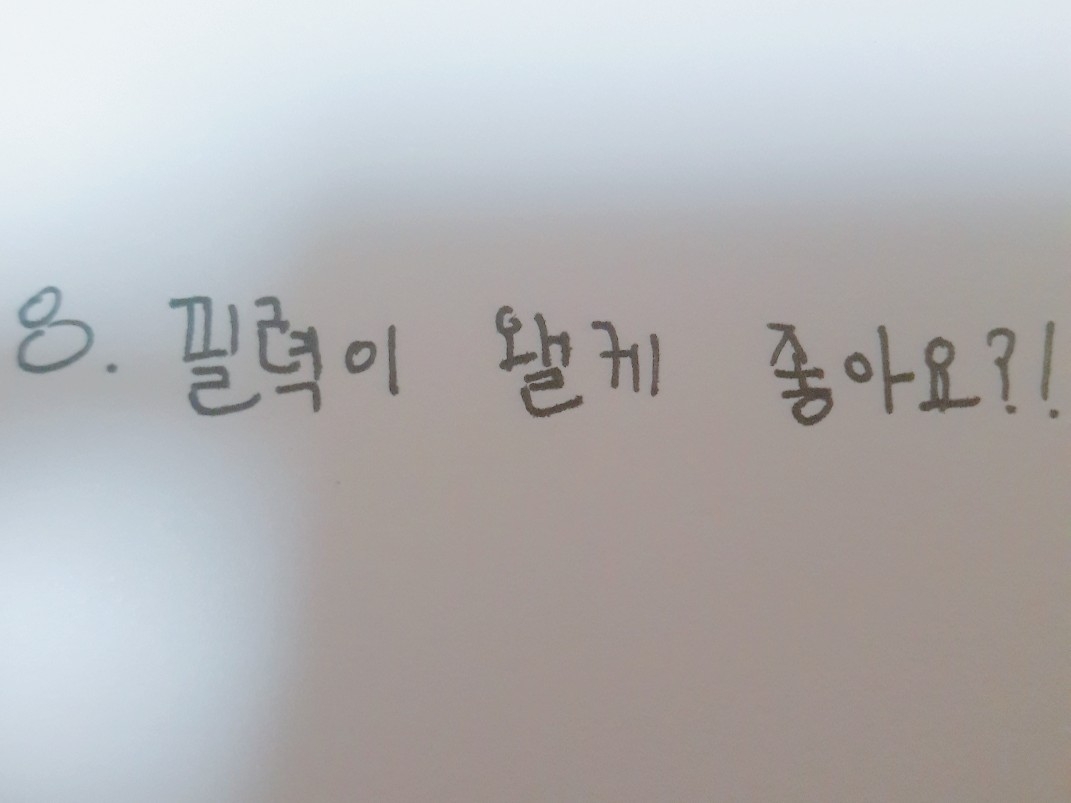 8. 필력이 왤케 좋아요?!